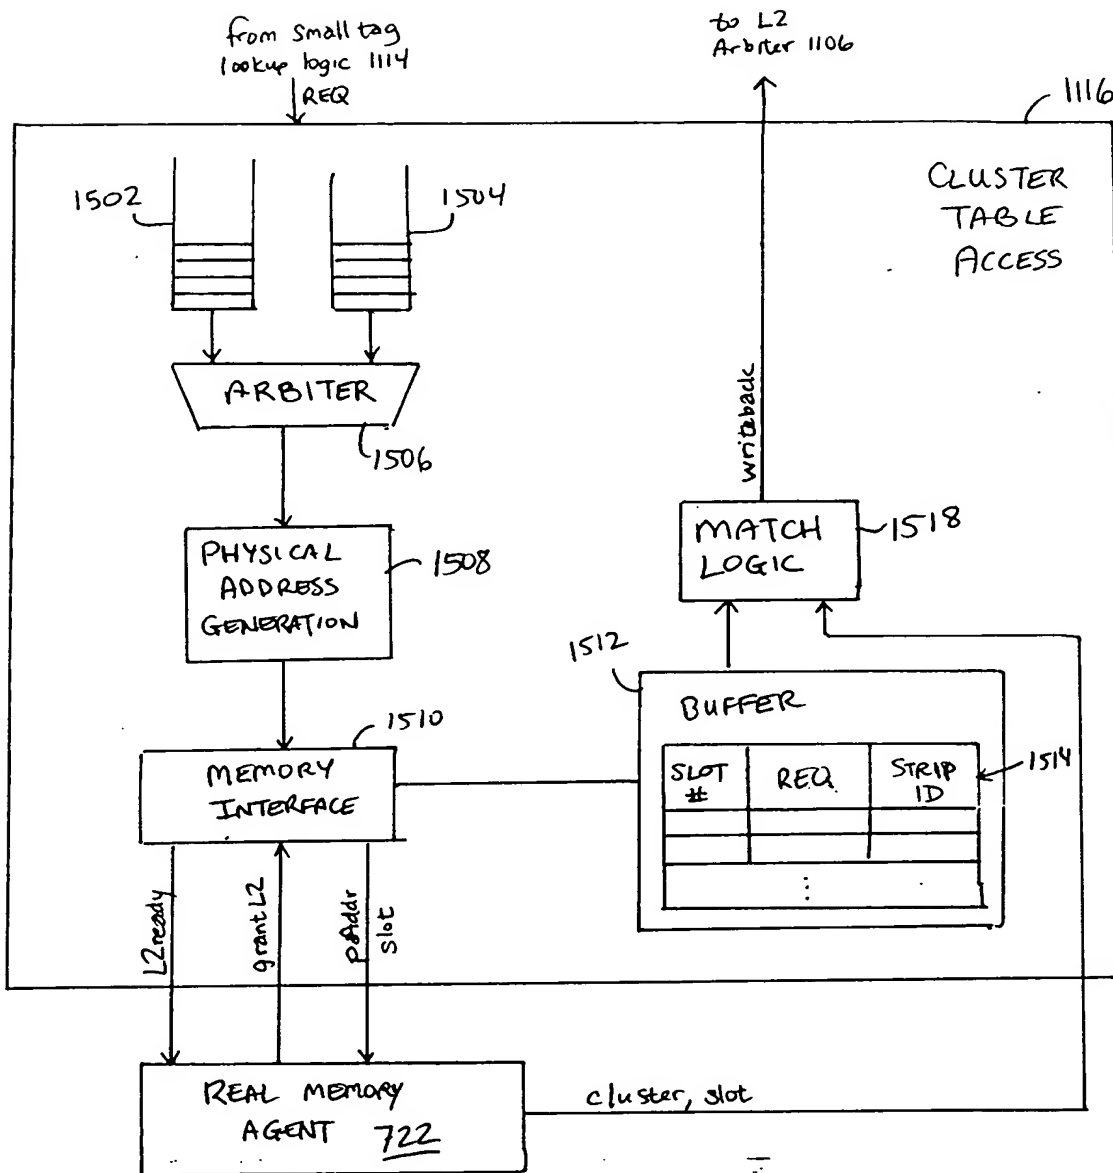 from small tag
lookup logic 1114
REQ
to L2
Arbiter 1106
1116
CLUSTER
TABLE
ACCESS
1502
1504
ARBITER
1506
PHYSICAL
ADDRESS
GENERATION
1508
writeback
MATCH
LOGIC
1518
1510
MEMORY
INTERFACE
1512
BUFFER
SLOT
#
REQ
STRIP
ID
1514
L2ready
grantL2
pAddr
slot
REAL MEMORY
AGENT 722
cluster, slot